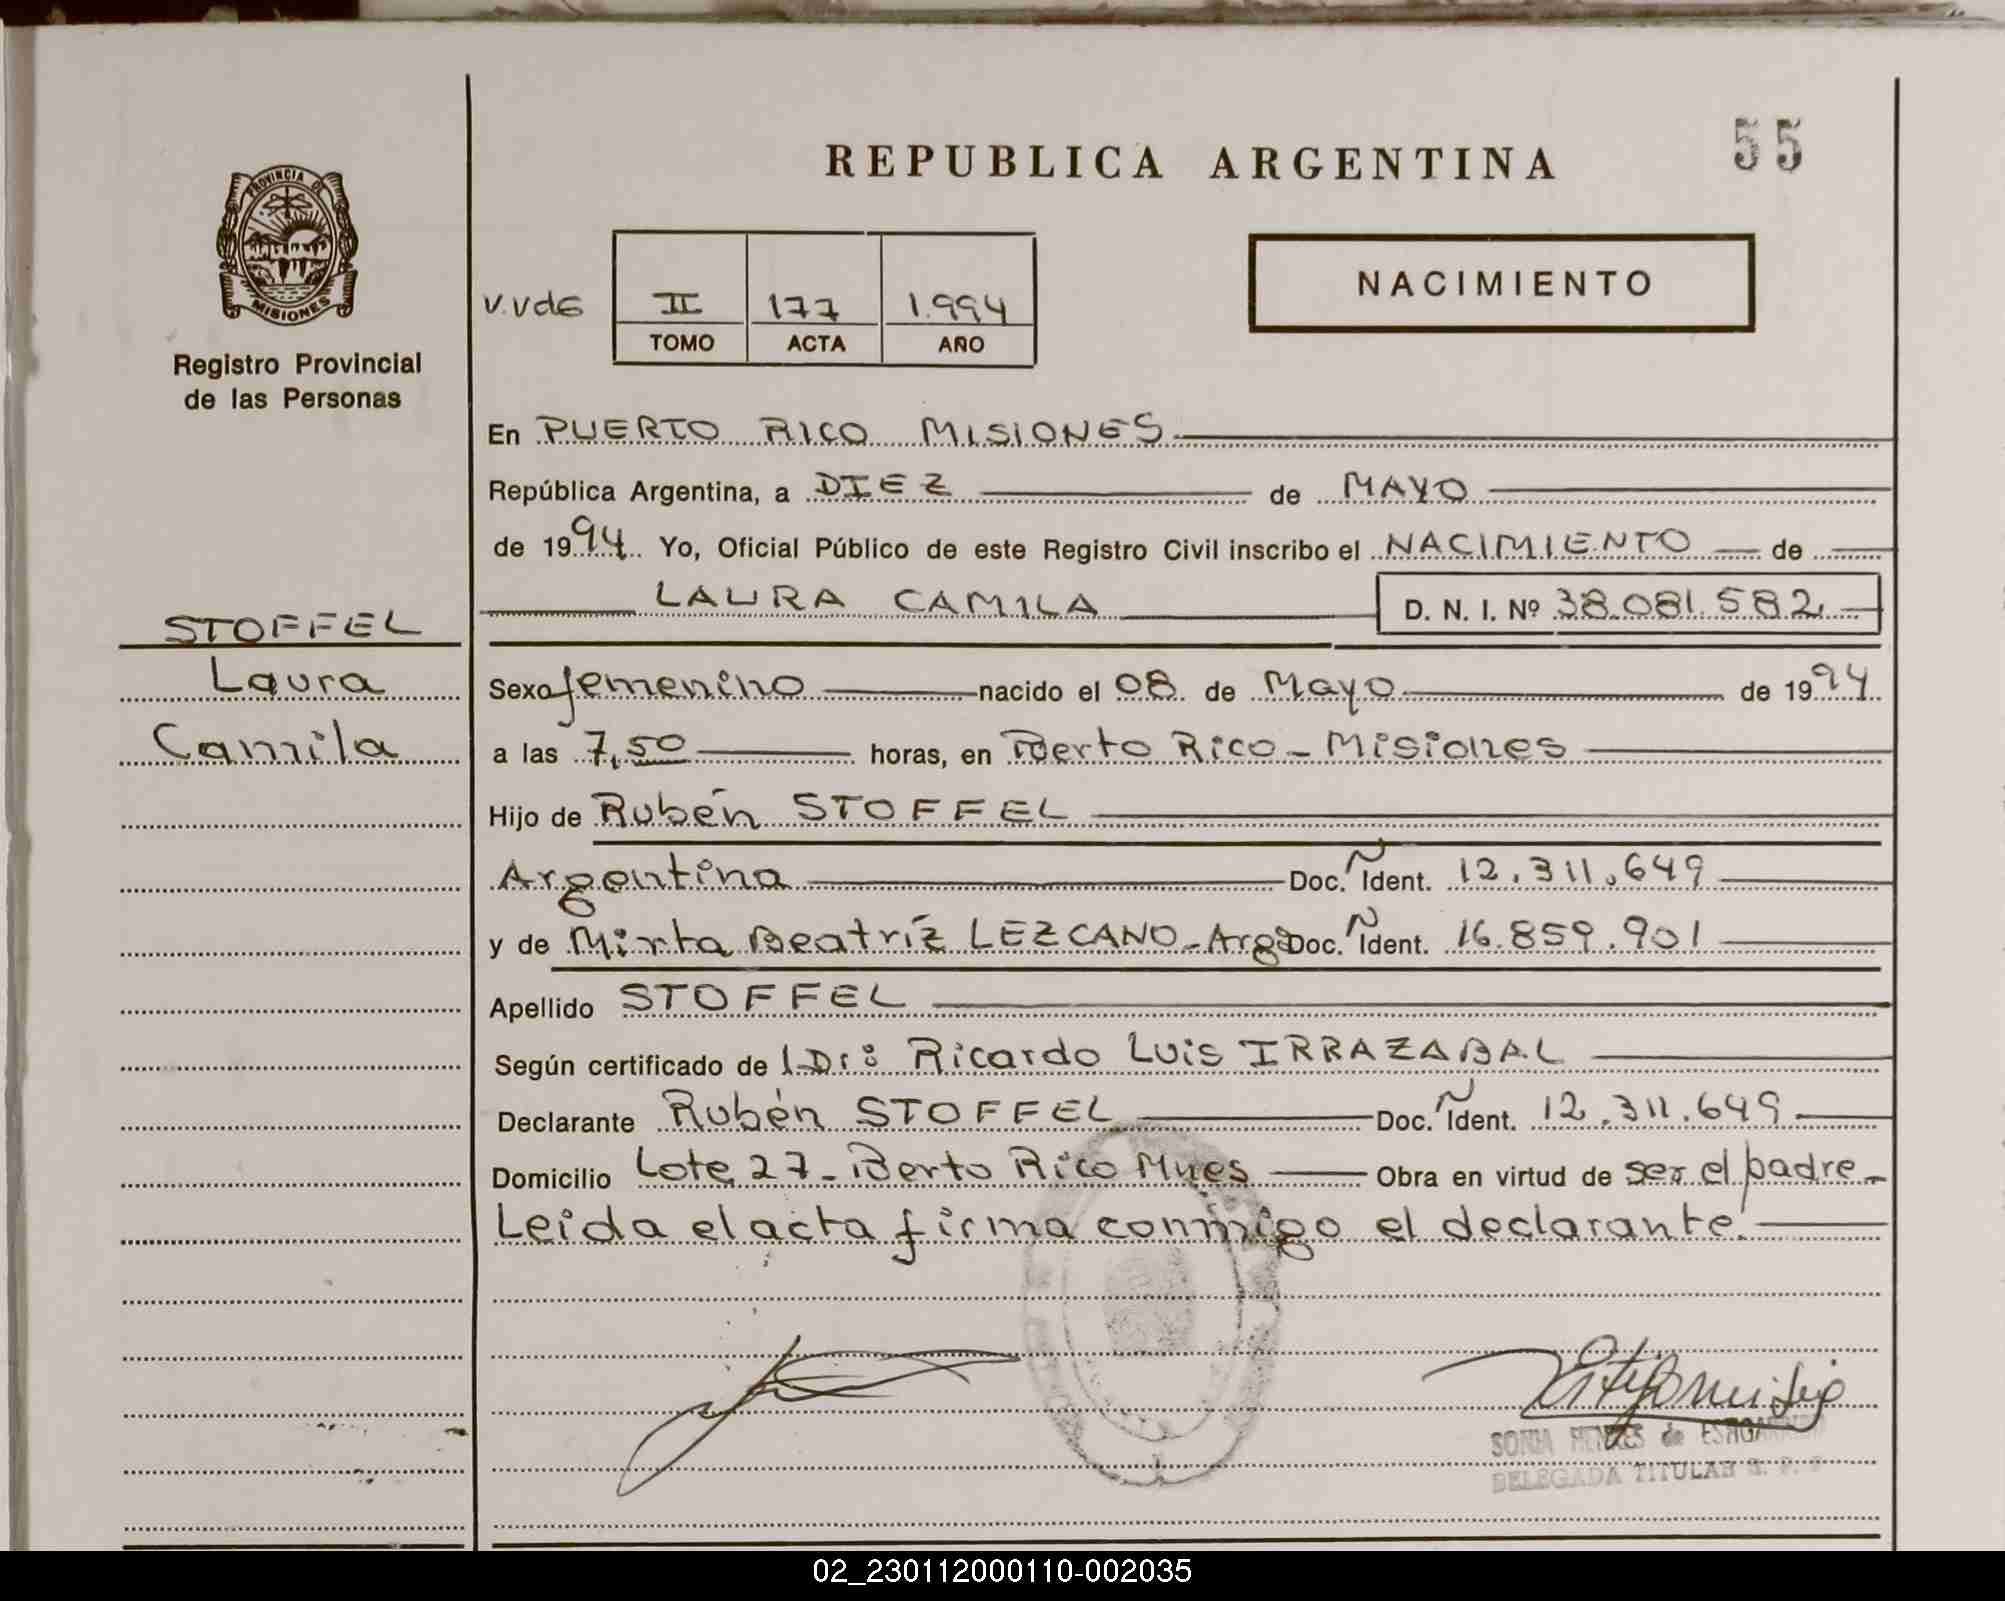 REPUBLICA ARGENTINA
55
PROVINCIA DE
MISIONES
Registro Provincial
de las Personas
V.Vde
II 177 1.994
TOMO ACTA AÑO
NACIMIENTO
En PUERTO RICO MISIONES
República Argentina, a DIEZ de MAYO
de 1994 Yo, Oficial Público de este Registro Civil inscribo el NACIMIENTO de
LAURA CAMILA D. N. I. Nº 38.081.582
STOFFEL
Laura
Camila
Sexo femenino nacido el 08 de Mayo de 1994
a las 7,50 horas, en Puerto Rico - Misiones
Hijo de Rubén STOFFEL
Argentina Doc. Ident. 12.311.649
y de Mirta Beatríz LEZCANO - Arg Doc. Ident. 16.859.901
Apellido STOFFEL
Según certificado de Dr: Ricardo Luis IRRAZABAL
Declarante Rubén STOFFEL Doc. Ident. 12.311.649
Domicilio Lote 27 - Puerto Rico Mnes Obra en virtud de ser el padre -
Leida el acta firma conmigo el declarante.
SONIA de
DELEGADA TITULAR R. P. P
02_230112000110-002035